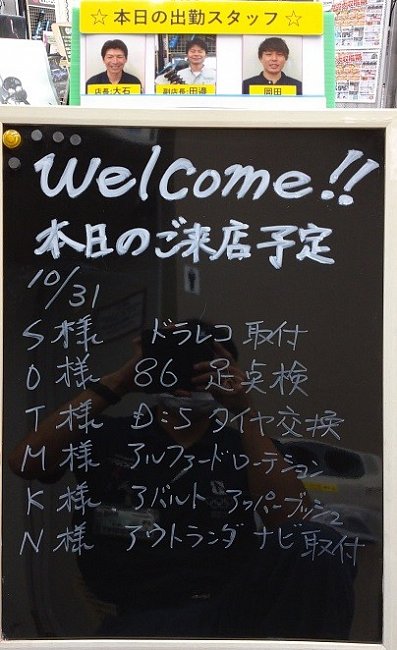 ☆ 本日の出勤スタッフ ☆
店長:大石 副店長:田邉 岡田
Welcome!!
本日のご来店予定
10/31
S様 ドラレコ取付
O様 86 足点検
T様 D:5 タイヤ交換
M様 アルファードローテション
K様 アバルト アッパーブッシュ
N様 アウトランダ ナビ取付